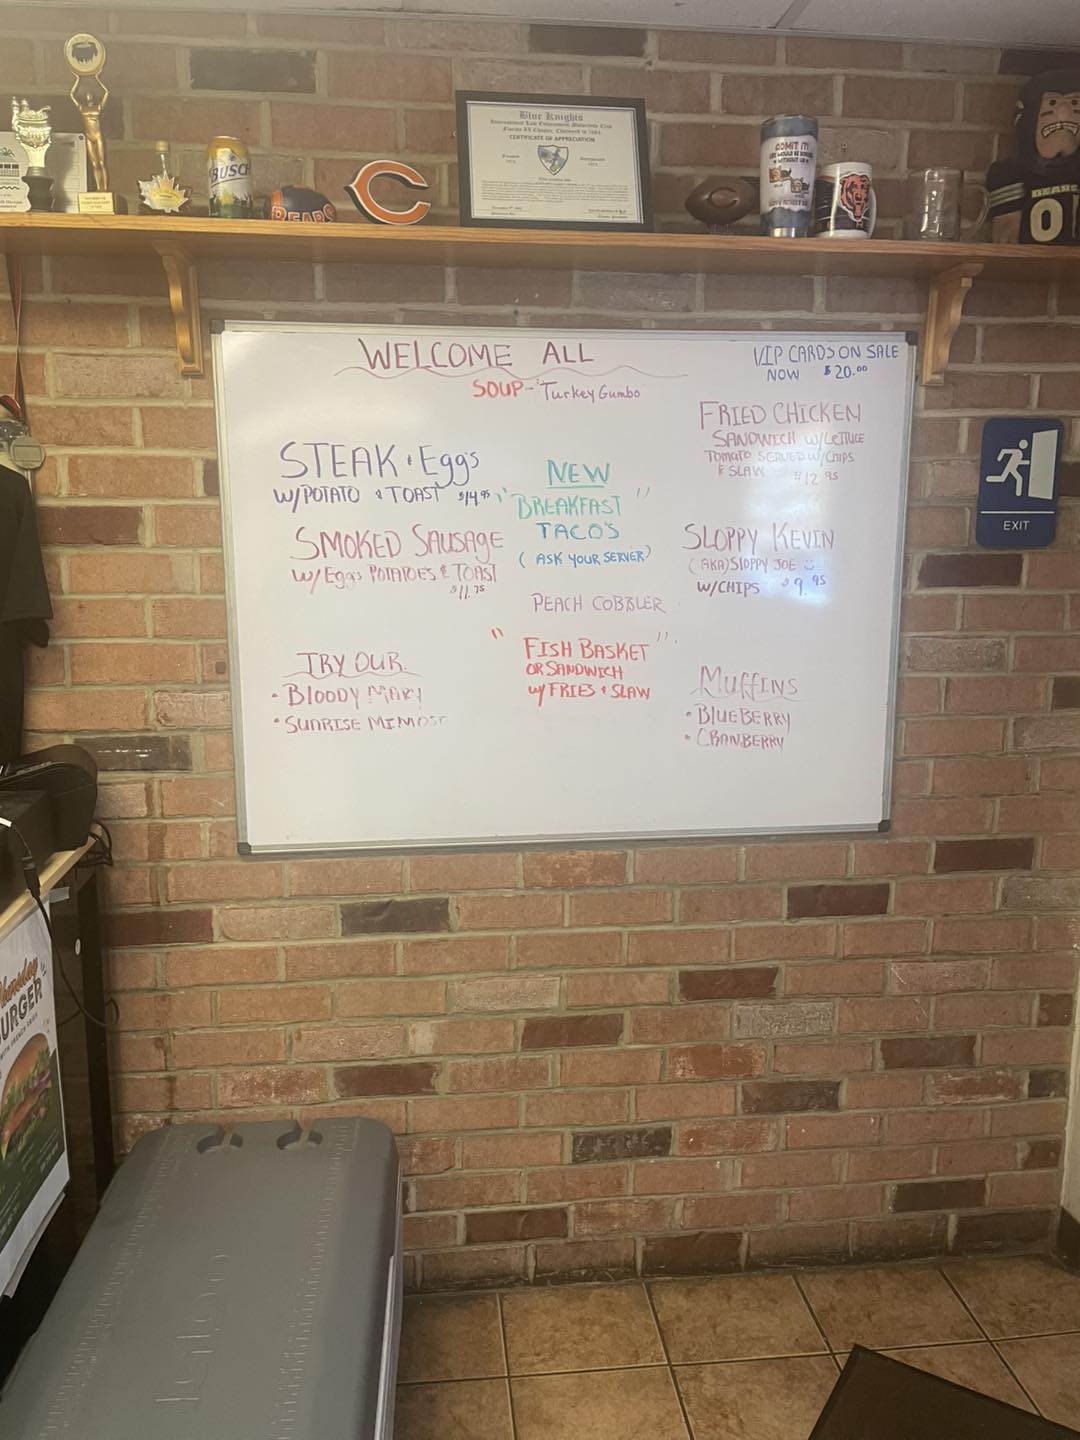 BUSCH
BEARS
Blue Knights
International Law Enforcement Motorcycle Club
CERTIFICATE OF APPRECIATION
ADMIT IT!
LIFE WOULD BE BORING
WITHOUT US
BEARS
0
WELCOME ALL
SOUP - Turkey Gumbo
VIP CARDS ON SALE
NOW $20.00
STEAK & Eggs
W/POTATO & TOAST $14.95
SMOKED SAUSAGE
W/Eggs POTATOES & TOAST
$11.75
TRY OUR
• BLOODY MARY
• SUNRISE MIMOSA
NEW
"BREAKFAST"
TACO'S
(ASK YOUR SERVER)
PEACH COBBLER
"FISH BASKET"
OR SANDWICH
w/ FRIES & SLAW
FRIED CHICKEN
SANDWICH W/LETTUCE
TOMATO SERVED W/CHIPS
& SLAW $12.95
SLOPPY KEVIN
(AKA) SLOPPY JOE
W/CHIPS $9.95
MUFFINS
• BLUEBERRY
• CRANBERRY
EXIT
URGER
Igloo